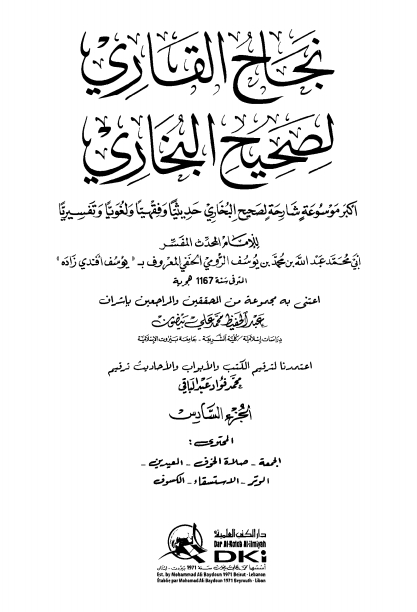 نجاح القاري
لصحيح البخاري
أكبر موسوعة شارحة لصحيح البخاري حديثيًّا وفقهيًّا ولغويًّا وتفسيريًّا
للإمام المحدث المفسر
أبي محمد عبد الله بن محمد بن يوسف الرومي الحنفي المعروف بـ «يوسف أفندي زاده»
المتوفى سنة 1167 هجرية
اعتنى به مجموعة من المحققين والمراجعين بإشراف
عبد الحفيظ محمد علي بيضون
دراسات إسلامية / كلية الشريعة - جامعة بيروت الإسلامية
اعتمدنا لترقيم الكتب والأبواب والأحاديث ترقيم
محمد فؤاد عبد الباقي
الجزء السادس
المحتوى:
الجمعة - صلاة الخوف - العيدين -
الوتر - الاستسقاء - الكسوف
دار الكتب العلمية
Dar Al-Kotob Al-ilmiyah
DKi
أسسها محمد علي بيضون سنة 1971 بيروت - لبنان
Est. by Mohammad Ali Baydoun 1971 Beirut - Lebanon
Établie par Mohamad Ali Baydoun 1971 Beyrouth - Liban